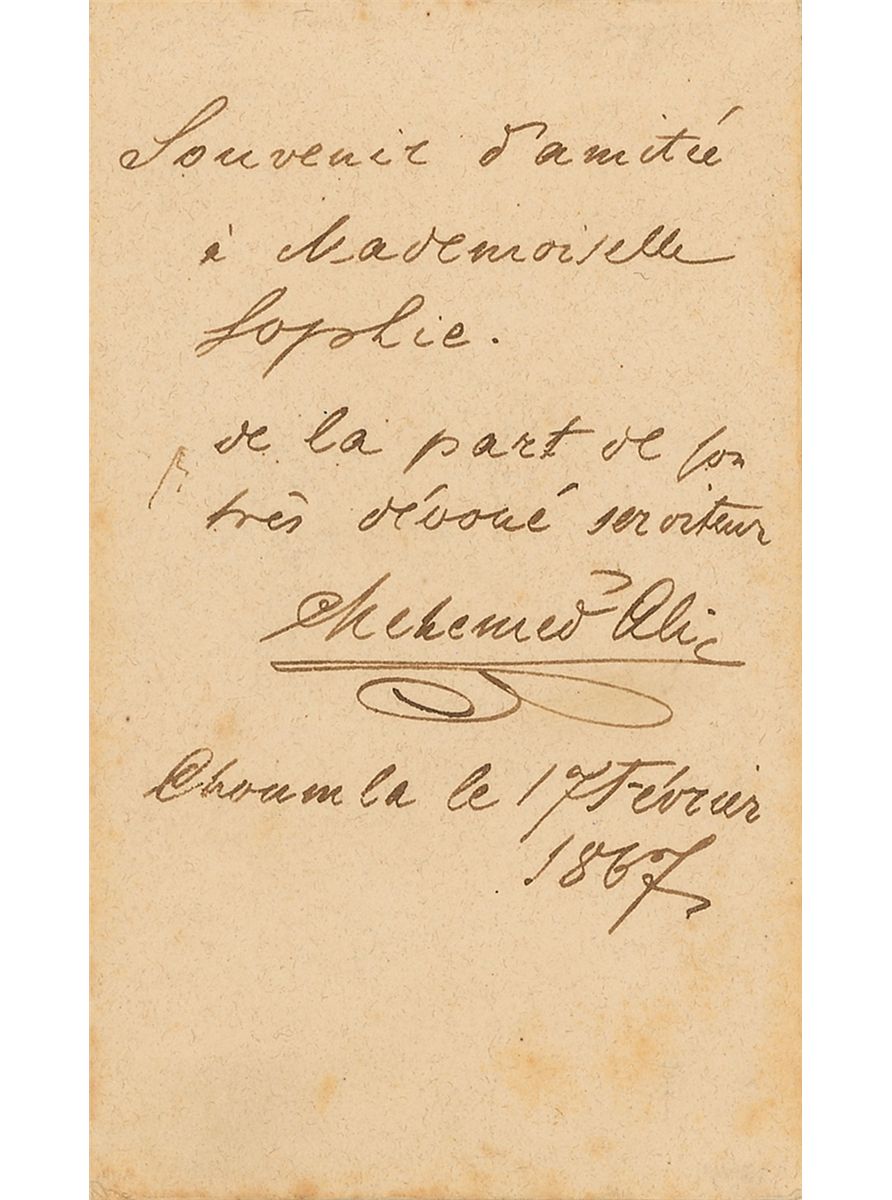 Souvenir d'amitié
à Mademoiselle
Sophie.
de la part de son
très dévoué serviteur
Mehemed Ali
Choumla le 17 Février
1867